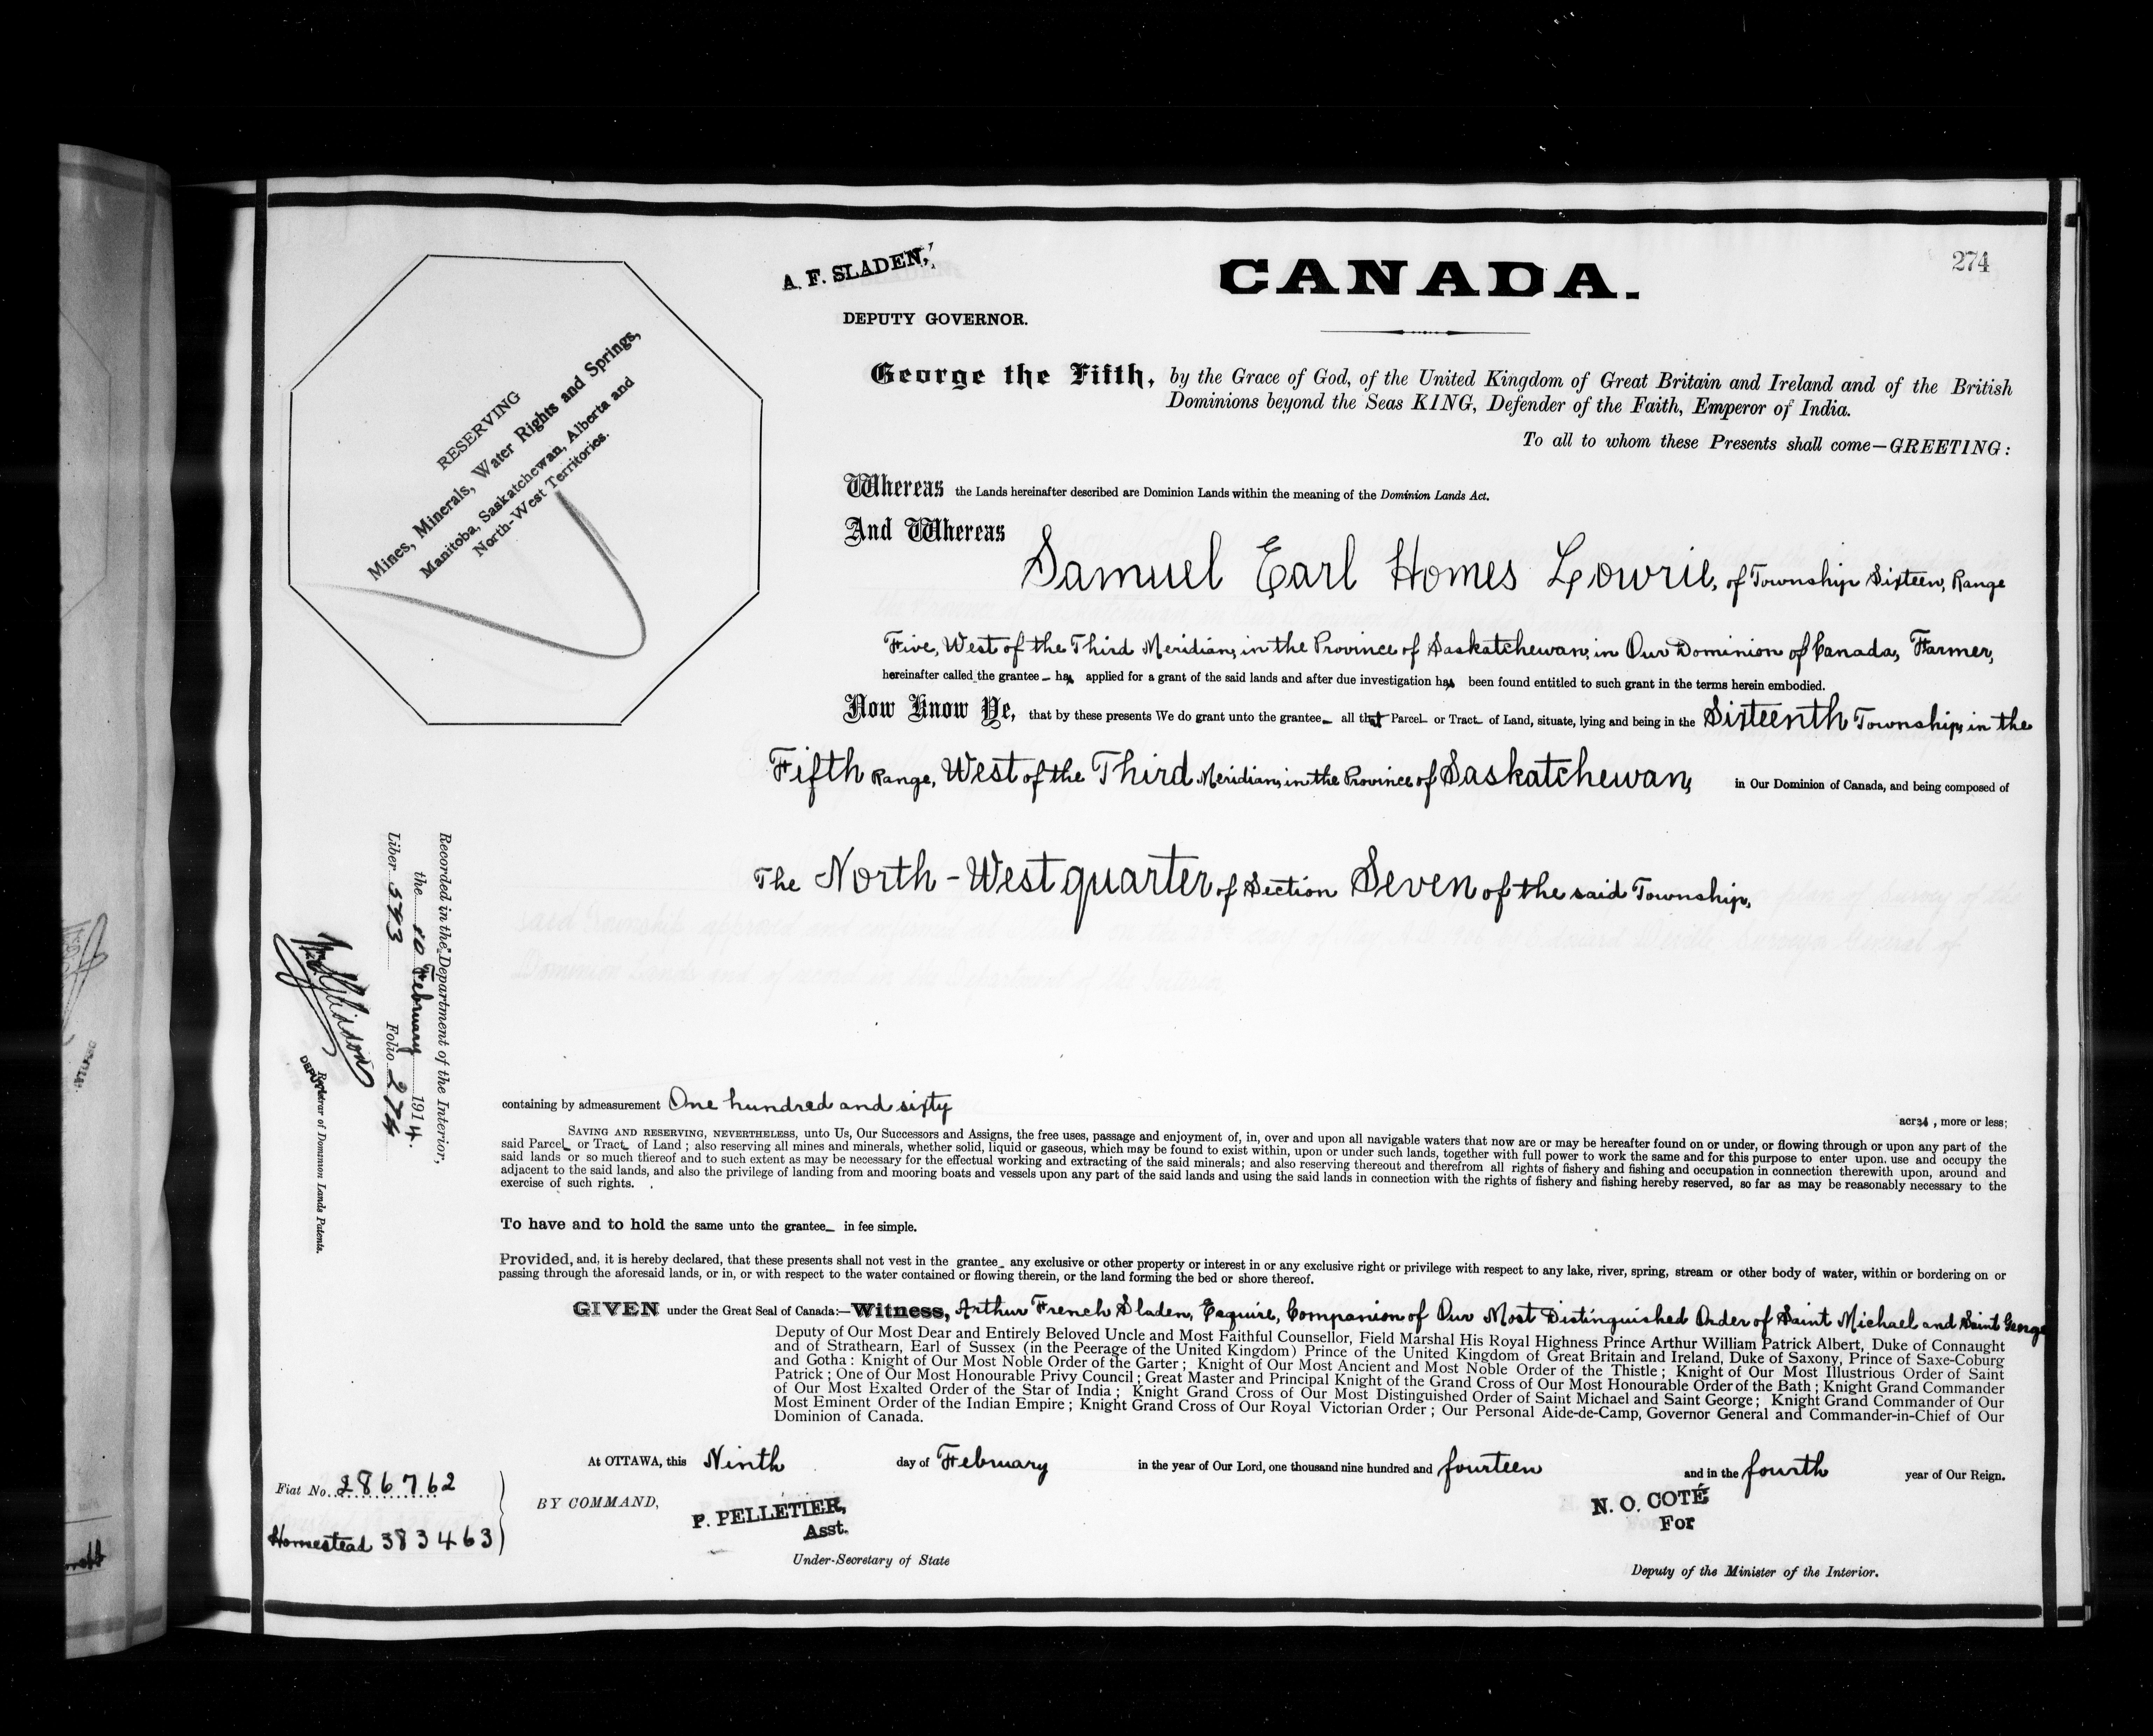 274
A. F. SLADEN,
DEPUTY GOVERNOR.
CANADA.
RESERVING
Mines, Minerals, Water Rights and Springs,
Manitoba, Saskatchewan, Alberta and
North-West Territories.
George the Fifth, by the Grace of God, of the United Kingdom of Great Britain and Ireland and of the British
Dominions beyond the Seas KING, Defender of the Faith, Emperor of India.
To all to whom these Presents shall come—GREETING:
Whereas the Lands hereinafter described are Dominion Lands within the meaning of the Dominion Lands Act.
And Whereas
Samuel Earl Homes Lowrie, of Township Sixteen, Range
Five, West of the Third Meridian, in the Province of Saskatchewan, in Our Dominion of Canada, Farmer,
hereinafter called the grantee has applied for a grant of the said lands and after due investigation has been found entitled to such grant in the terms herein embodied.
Now Know Ye, that by these presents We do grant unto the grantee all that Parcel or Tract of Land, situate, lying and being in the Sixteenth Township, in the
Fifth Range, West of the Third Meridian, in the Province of Saskatchewan, in Our Dominion of Canada, and being composed of
The North-West quarter of Section Seven of the said Township,
Recorded in the Department of the Interior,
the 10 February 1914.
Liber 593 Folio 274
DEPUTY Registrar of Dominion Lands Patents.
containing by admeasurement One hundred and sixty acres, more or less;
SAVING AND RESERVING, NEVERTHELESS, unto Us, Our Successors and Assigns, the free uses, passage and enjoyment of, in, over and upon all navigable waters that now are or may be hereafter found on or under, or flowing through or upon any part of the
said Parcel or Tract of Land; also reserving all mines and minerals, whether solid, liquid or gaseous, which may be found to exist within, upon or under such lands, together with full power to work the same and for this purpose to enter upon, use and occupy the
said lands or so much thereof and to such extent as may be necessary for the effectual working and extracting of the said minerals; and also reserving thereout and therefrom all rights of fishery and fishing and occupation in connection therewith upon, around and
adjacent to the said lands, and also the privilege of landing from and mooring boats and vessels upon any part of the said lands and using the said lands in connection with the rights of fishery and fishing hereby reserved, so far as may be reasonably necessary to the
exercise of such rights.
To have and to hold the same unto the grantee in fee simple.
Provided, and, it is hereby declared, that these presents shall not vest in the grantee any exclusive or other property or interest in or any exclusive right or privilege with respect to any lake, river, spring, stream or other body of water, within or bordering on or
passing through the aforesaid lands, or in, or with respect to the water contained or flowing therein, or the land forming the bed or shore thereof.
GIVEN under the Great Seal of Canada:—Witness, Arthur French Sladen, Esquire, Companion of Our Most Distinguished Order of Saint Michael and Saint George
Deputy of Our Most Dear and Entirely Beloved Uncle and Most Faithful Counsellor, Field Marshal His Royal Highness Prince Arthur William Patrick Albert, Duke of Connaught
and of Strathearn, Earl of Sussex (in the Peerage of the United Kingdom) Prince of the United Kingdom of Great Britain and Ireland, Duke of Saxony, Prince of Saxe-Coburg
and Gotha: Knight of Our Most Noble Order of the Garter; Knight of Our Most Ancient and Most Noble Order of the Thistle; Knight of Our Most Illustrious Order of Saint
Patrick; One of Our Most Honourable Privy Council; Great Master and Principal Knight of the Grand Cross of Our Most Honourable Order of the Bath; Knight Grand Commander
of Our Most Exalted Order of the Star of India; Knight Grand Cross of Our Most Distinguished Order of Saint Michael and Saint George; Knight Grand Commander of Our
Most Eminent Order of the Indian Empire; Knight Grand Cross of Our Royal Victorian Order; Our Personal Aide-de-Camp, Governor General and Commander-in-Chief of Our
Dominion of Canada.
At OTTAWA, this Ninth day of February in the year of Our Lord, one thousand nine hundred and fourteen and in the fourth year of Our Reign.
Fiat No. 286762
Homestead 383463
BY COMMAND,
P. PELLETIER,
Asst.
Under-Secretary of State
N. O. COTÉ
For
Deputy of the Minister of the Interior.